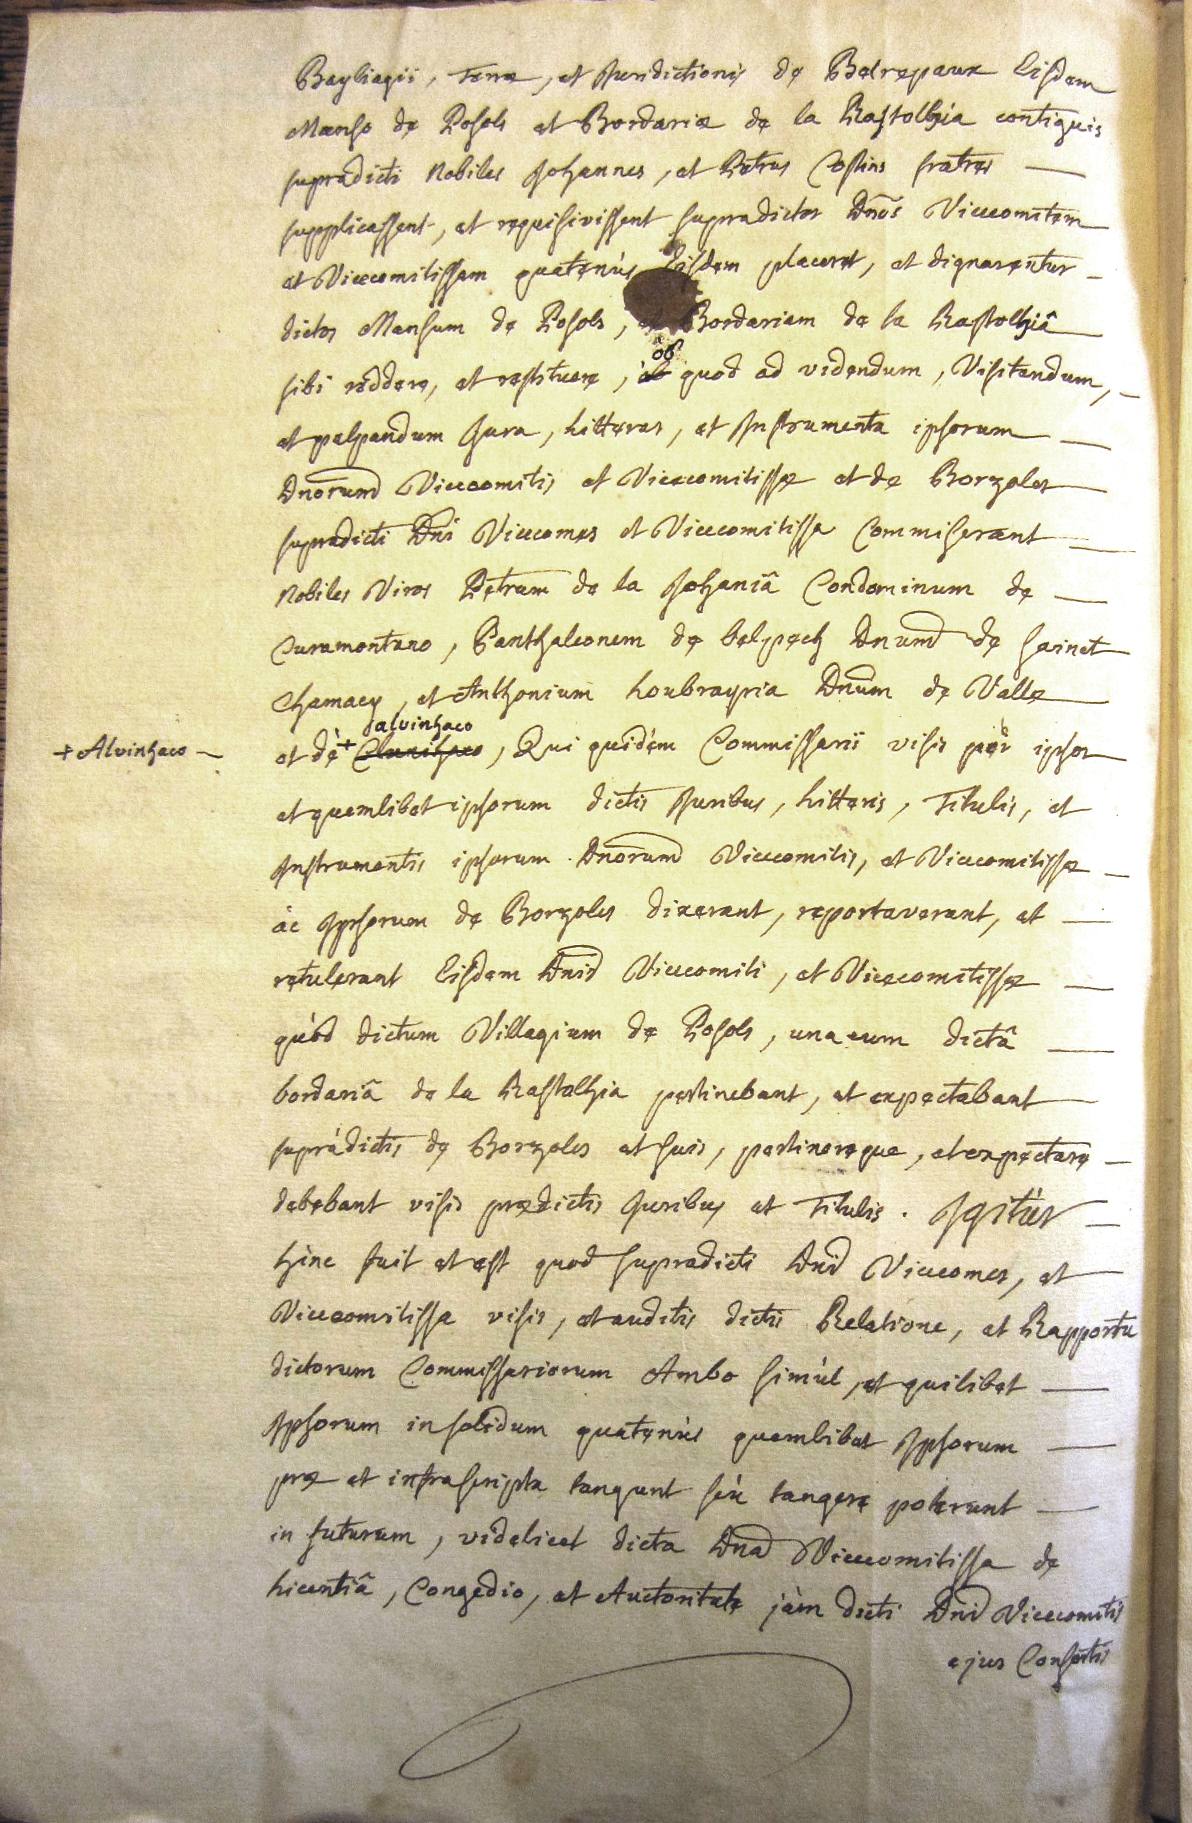 Bayliagii, Terræ, et Jurisdictionis de Belrepaux Eisdem
Manso de Posols et Bordariæ de la Rastolhia contiguis
supradicti Nobiles Johannes, et Petrus Costins fratres —
supplicassent, et requisivissent supradictos Dnōs Vicecomitem
et Vicecomitissam quatenùs Eisdem placeret, et dignarentur —
dictos Mansum de Posols, et Bordariam de la Rastolhiâ
sibi reddere, et restituere, ob quod ad videndum, Visitandum, —
et palpandum Jura, Litteras, et Instrumenta ipsorum —
Dnorum Vicecomitis et Vicecomitissæ et de Borzoles
supradicti Dni Vicecomes et Vicecomitissa Commiserant —
Nobiles Viros Petrum de la Johaniâ Condominum de —
Curamontano, Panthaleonem de belpech Dnum de Sainct
Chamacy, et Anthonium Loubrayria Dnum de Valle
+ Alvinhaco —
alvinhaco
et dè + , Qui quidèm Commissarii visis per ipsos
et quemlibet ipsorum dictis Juribus, Litteris, Titulis, et
Instrumentis ipsorum Dnorum Vicecomitis, et Vicecomitissæ —
ac Ipsorum de Borzoles dixerant, reportaverant, et —
retulerant Eisdem Dnis Vicecomiti, et Vicecomitissæ —
quòd dictum Villagium de Posols, una cum dictâ —
bordariâ de la Rastolhia pertinebant, et expectabant
suprádictis de Borzoles et suis, pertinereque, et expectare —
debebant visis prædictis Juribus et Titulis. Igitùr —
hinc fuit et est quod supradicti Dni Vicecomes, et
Vicecomitissa visis, et auditis dictis Relatione, et Rapportu
dictorum Commissariorum Ambo simùl, et quilibet —
Ipsorum in solidum quatenùs quemlibet Ipsorum —
præ et infrascripta tangunt seù tangere poterunt —
in futurum, videlicet dicta Dna Vicecomitissa de
Licentiâ, Congedio, et Auctoritate jàm dicti Dni Vicecomitis
ejus Consortis